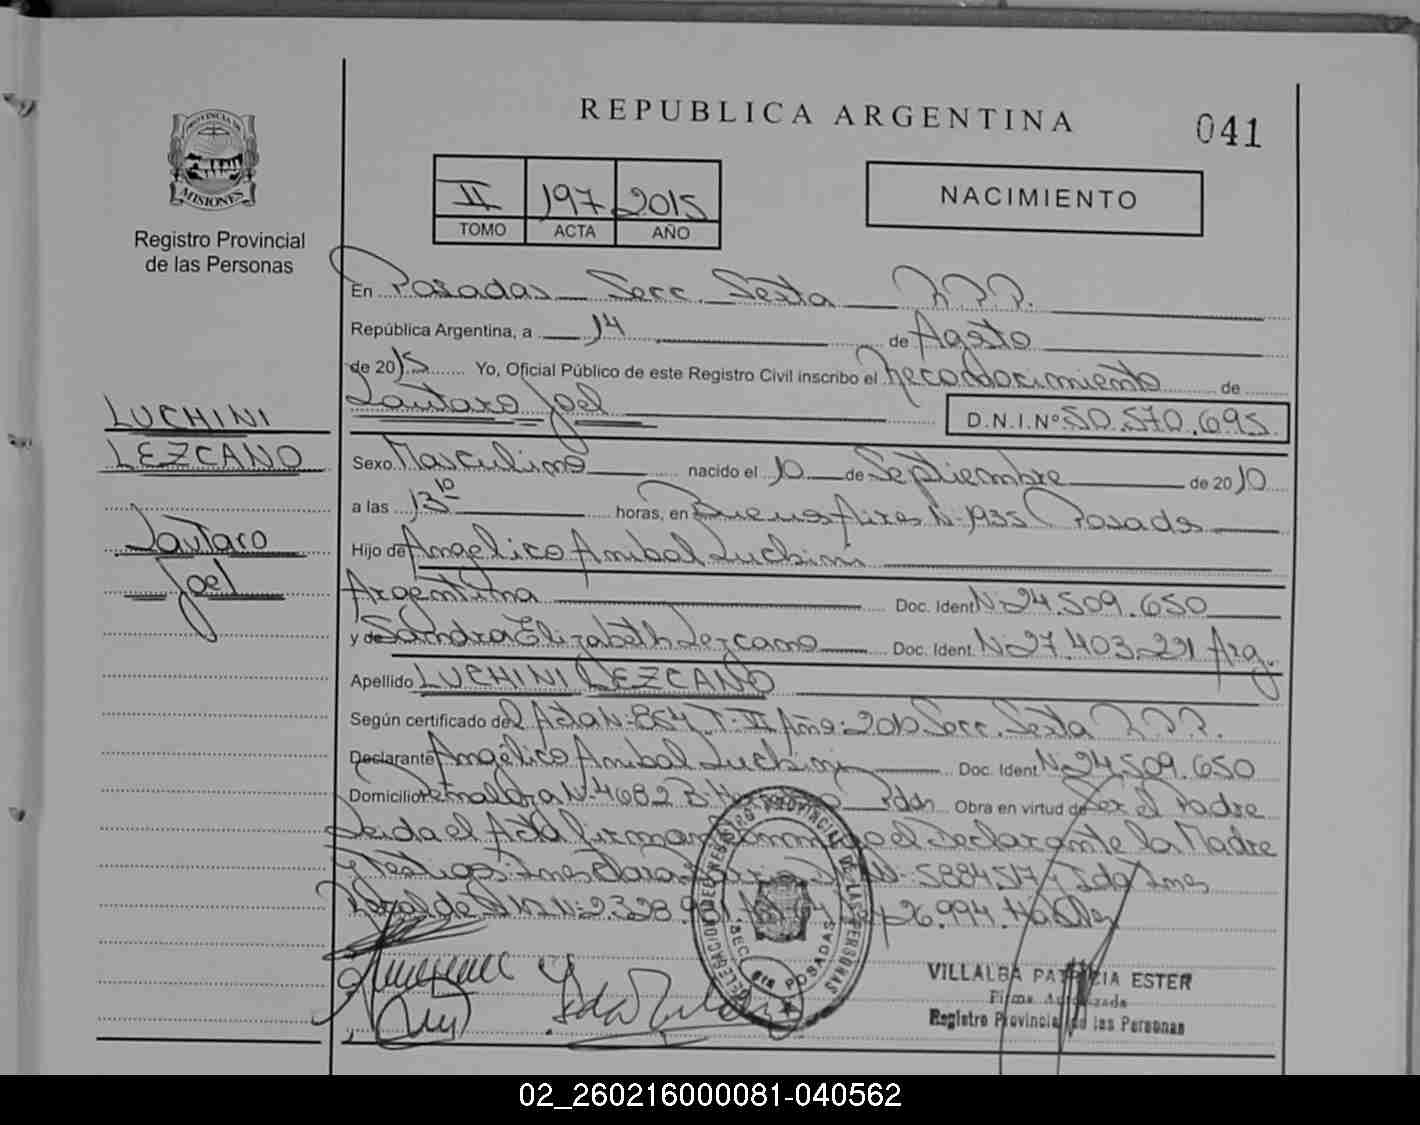 REPUBLICA ARGENTINA
041
PROVINCIA DE
MISIONES
Registro Provincial
de las Personas
II 197 2015
TOMO ACTA AÑO
NACIMIENTO
En Posadas Secc. Sexta R.P.P.
República Argentina, a 14 de Agosto
de 2015 Yo, Oficial Público de este Registro Civil inscribo el Reconocimiento de
Lautaro Joel D.N.I.Nº 50.570.695
LUCHINI
LEZCANO
Lautaro
Joel
Sexo Masculino nacido el 10 de Septiembre de 2010
a las 13 10 horas, en Buenos Aires Nº 1935 Posadas
Hijo de Angelico Anibal Luchini
Argentina Doc. Ident Nº 24.509.650
y de Sandra Elizabeth Lezcano Doc. Ident. Nº 27.403.291 Arg.
Apellido LUCHINI LEZCANO
Según certificado del Acta Nº 864 T: II Año: 2010 Secc. Sexta R.P.P.
Declarante Angélico Anibal Luchini Doc. Ident Nº 24.509.650
Domicilio Nº 4682 Bº Pdas Obra en virtud de Ser el Padre
Leida el Acta firman conmigo el Declarante la Madre
y Testigos: Ines Nº 5884517 y Ida Ines
DELEGACION DEL REGISTRO PROVINCIAL DE LAS PERSONAS
SECC. 6ta POSADAS
VILLALBA PATRICIA ESTER
Firma Autorizada
Registro Provincial de las Personas
02_260216000081-040562